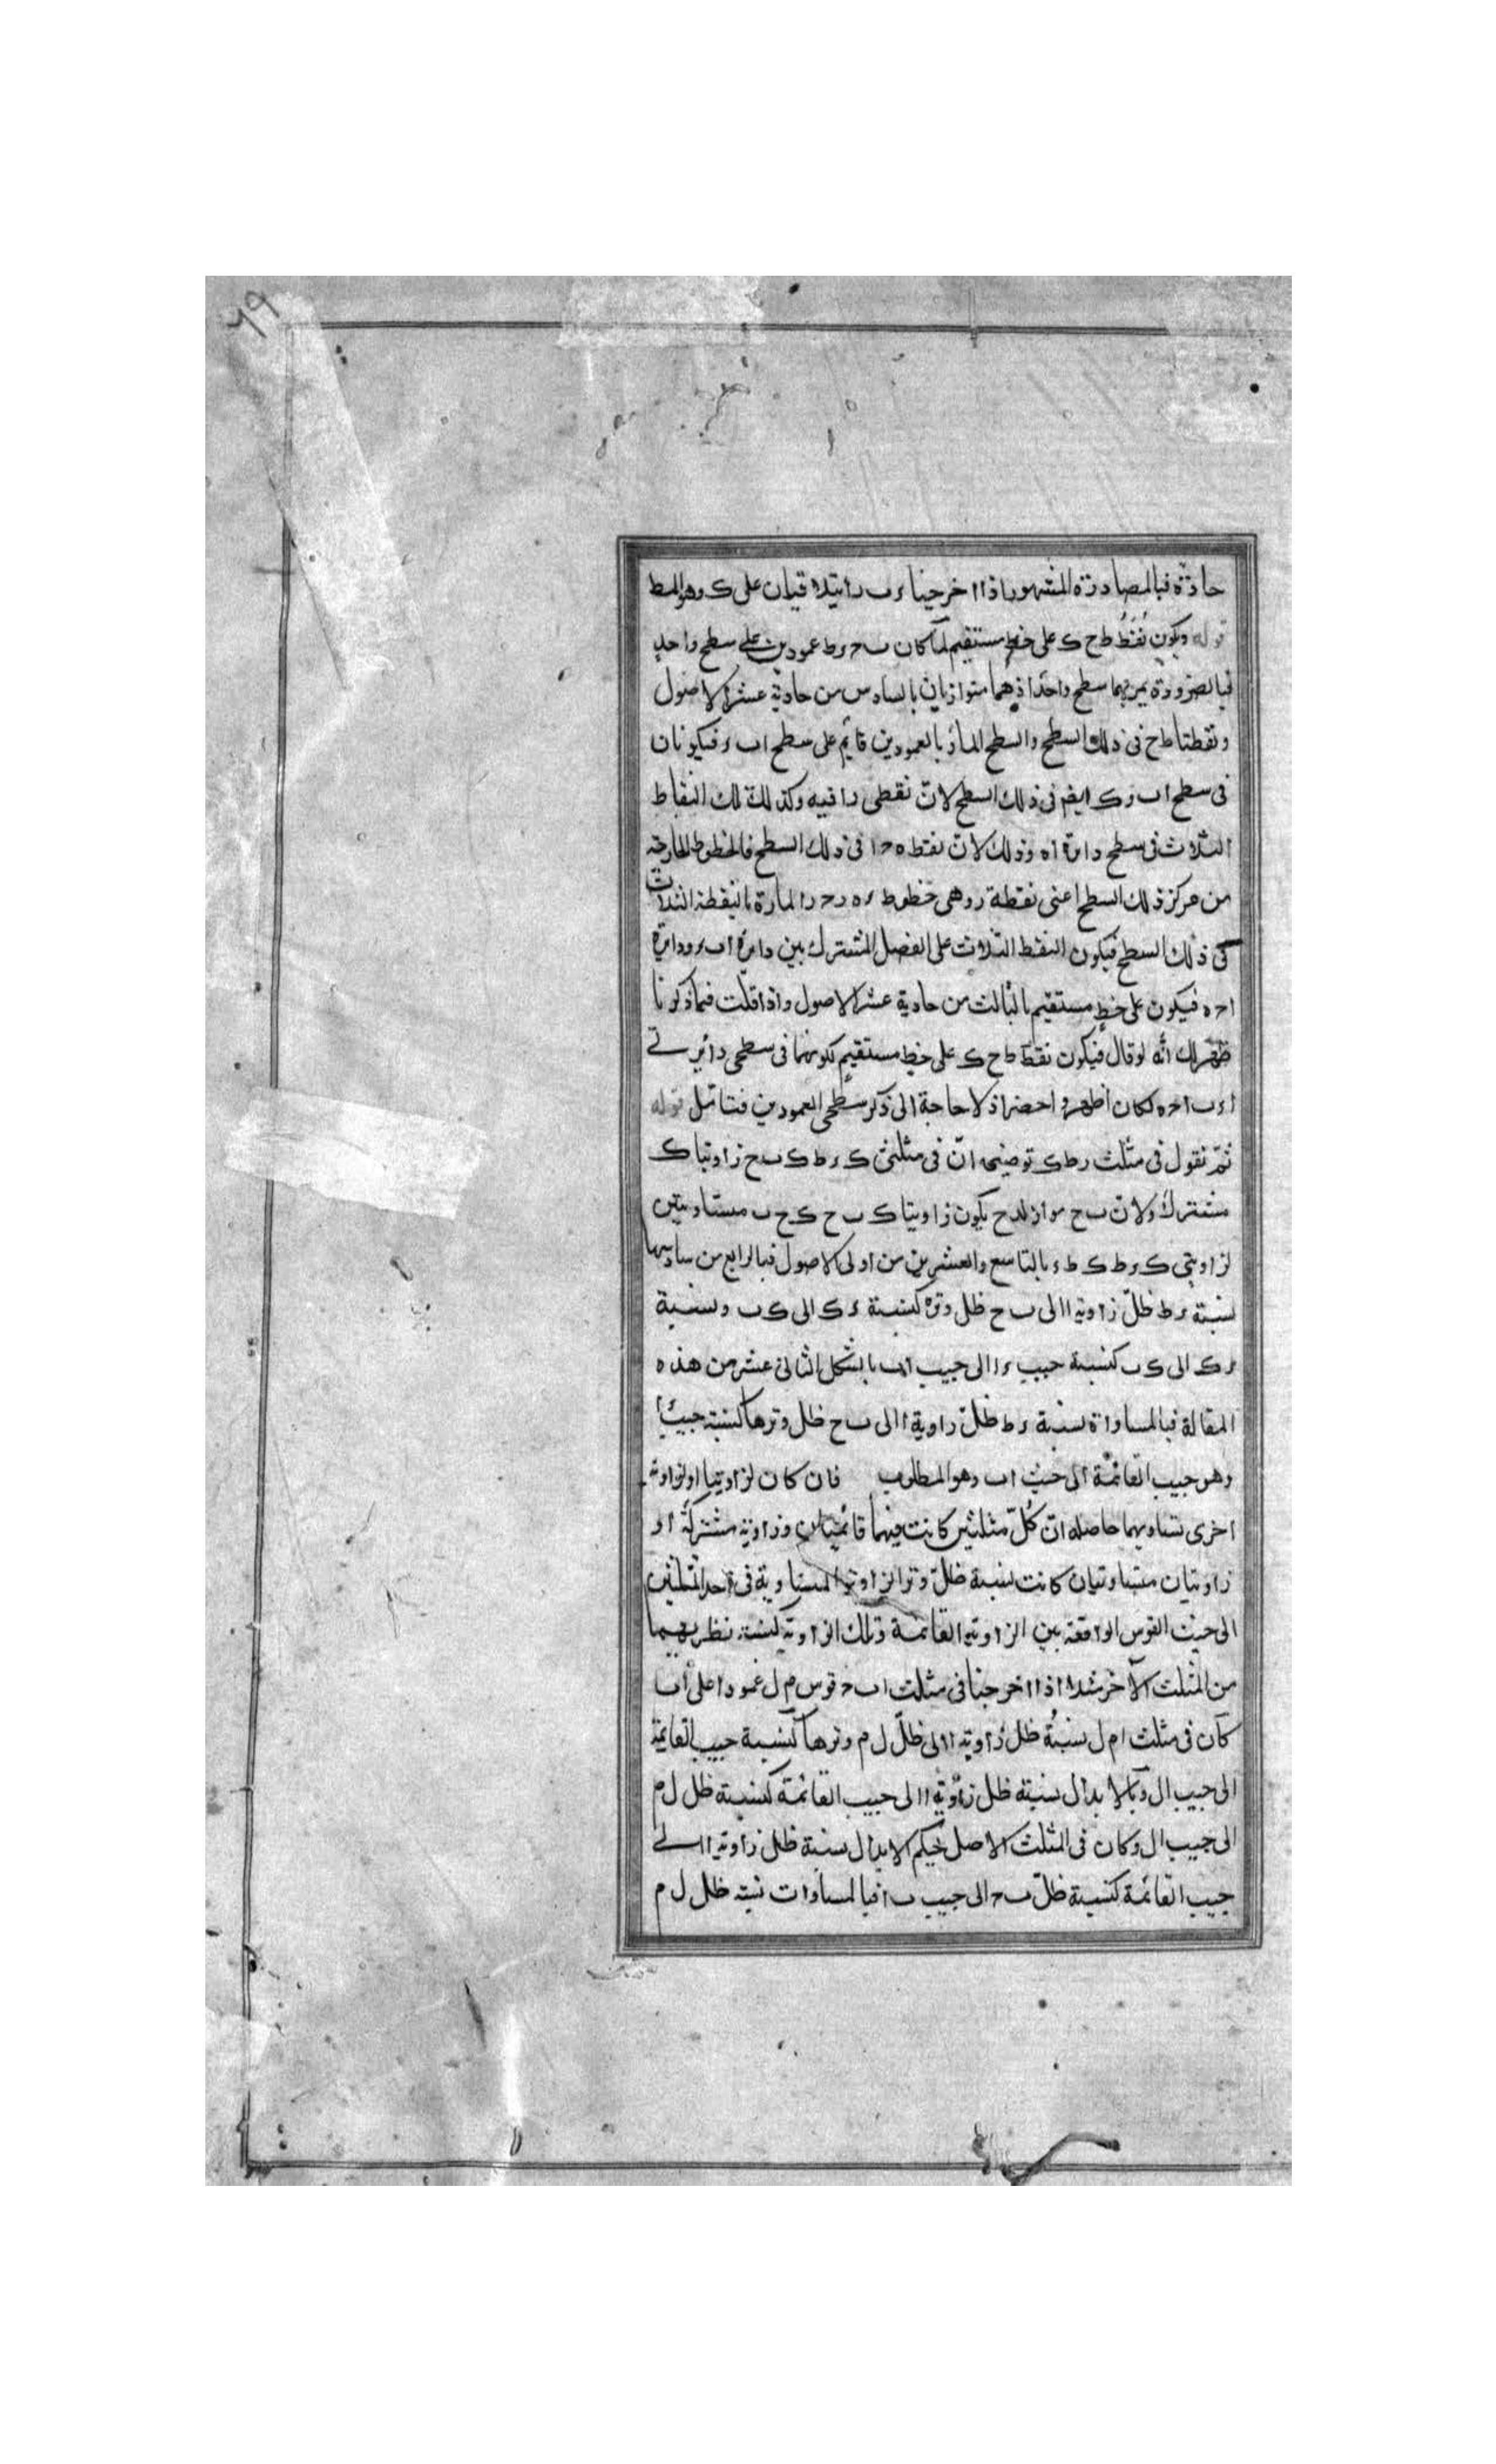 ٦٩
حادّة فبالمصادرة المشهورة اذا اخرجنا ء ب را يتلاقيان على ک وهو المط
قوله ويكون نُقَطُ ط ح ک على خطٍ مستقيم لما كان ب ح ء ط عمودين على سطح واحدٍ
فبالضرورة يمر بهما سطح واحد اذ هما متوازيان بالسادس من حادية عشر الاصول
ونقطتا ط ح فى ذلك السطح والسطح المار بالعمودين قائم على سطح ا ب ء فيكونان
فى سطح ا ب ء و ک ايضم فى ذلك السطح لانّ نقطى را فيه وكذلك تلك النقاط
الثلاث فى سطح دائرة ا ه وذلك لانّ نقط ه ح ا فى ذلك السطح فالخطوط الخارجة
من مركز ذلك السطح اعنى نقطة ر وهى خطوط ر ه ر ح ر ا المارة بالنقطة الثلاث
فى ذلك السطح فيكون النقط الثلاث على الفصل المشترك بين دائرة ا ب ء ودائرة
ا ح ه فيكون على خطٍ مستقيم بالثالث من حادية عشر الاصول واذا تاملت فيما ذكرنا
ظهر لك انّه لو قال فيكون نقط ط ح ک على خط مستقيمٍ لكونهما فى سطحى دائرتى
ا ء ب ا ح ه لكان اظهر و اخصر اذ لا حاجة الى ذكر سطحى العمودين فتامّل قوله
ثمّ نقول فى مثلث ر ط ک توضيحه انّ فى مثلثى ک ء ط ک ب ح زاويتا ک
مشترك ولانّ ب ح مواز لـ ء ط يكون زاويتا ک ب ح ک ح ب متساويتين
لزاويتى ک ء ط ک ط ء بالتاسع والعشرين من اولى الاصول فبالرابع من سادسها
نسبة ء ط ظلّ زاوية ا الى ب ح ظل وتره كنسبة ء ک الى ک ب ونسبة
ء ک الى ک ب كنسبة جيب ء ا الى جيب ا ب بالشكل الثانى عشر من هذه
المقالة فبالمساواة نسبة ء ط ظلّ زاوية ا الى ب ح ظل وترها كنسبة جيب ء ا
وهو جيب القائمة الى جيب ا ب وهو المطلوب فان كان لزاويتها او لزاوية
اخرى تساويهما حاصله انّ كُلّ مثلثين كانت فيهما قائمتان وزاوية مشتركة او
زاويتان متساويتان كانت نسبة ظلّ وتر الزاوية المتساوية فى احد المثلثين
الى جيب القوس الواقعة بين الزاوية القائمة وتلك الزاوية كنسبة نظيريهما
من المثلث الآخر مثلا اذا اخرجنا فى مثلث ا ب ح قوس م ل عمودا على ا ب
كان فى مثلث ا م ل نسبة ظل زاوية ا الى ظلّ ل م وترها كنسبة جيب القائمة
الى جيب ا ل وبالابدال نسبة ظل زاوية ا الى جيب القائمة كنسبة ظل ل م
الى جيب ا ل وكان فى المثلث الاصل بحكم الابدال نسبة ظل زاوية ا الى
جيب القائمة كنسبة ظلّ ب ح الى جيب ب ا فبالمساوات نسبة ظل ل م